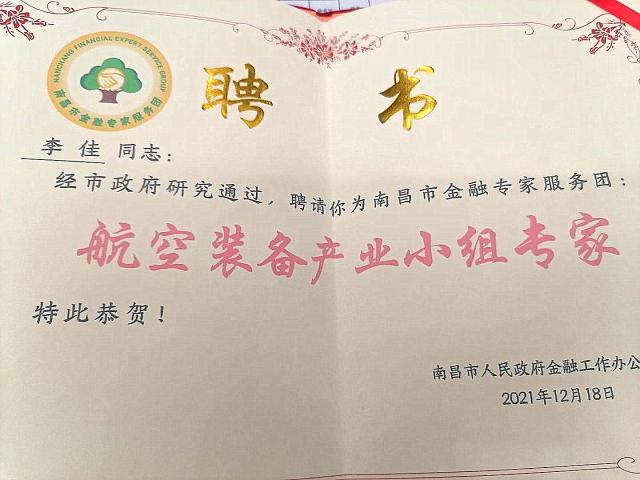 NANCHANG FINANCIAL EXPERT SERVICE GROUP
南昌市金融专家服务团
聘 书
李佳 同志：
经市政府研究通过，聘请你为南昌市金融专家服务团：
航空装备产业小组专家
特此恭贺！
南昌市人民政府金融工作办公
2021年12月18日